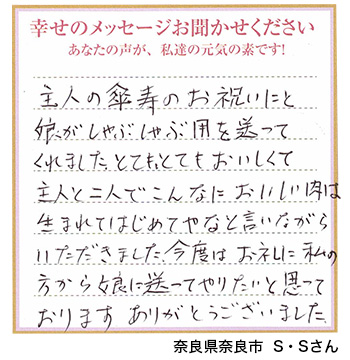 幸せのメッセージお聞かせください
あなたの声が、私達の元気の素です!
主人の傘寿のお祝いにと
娘がしゃぶしゃぶ用を送って
くれました。とても、とてもおいしくて
主人と二人でこんなにおいしい肉は
生まれてはじめてやなと言いながら
いただきました。今度はお礼に私の
方から娘に送ってやりたいと思って
おります ありがとうございました。
奈良県奈良市 S・Sさん